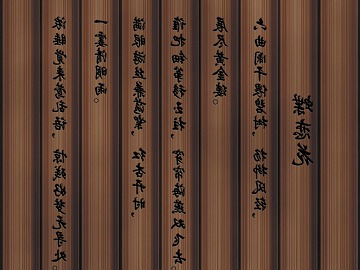 蝶恋花
六曲阑干偎碧树，杨柳风轻，
展尽黄金缕。
谁把钿筝移玉柱，穿帘海燕双飞去。
满眼游丝兼落絮，红杏开时，
一霎清明雨。
浓睡觉来莺乱语，惊残好梦无寻处。